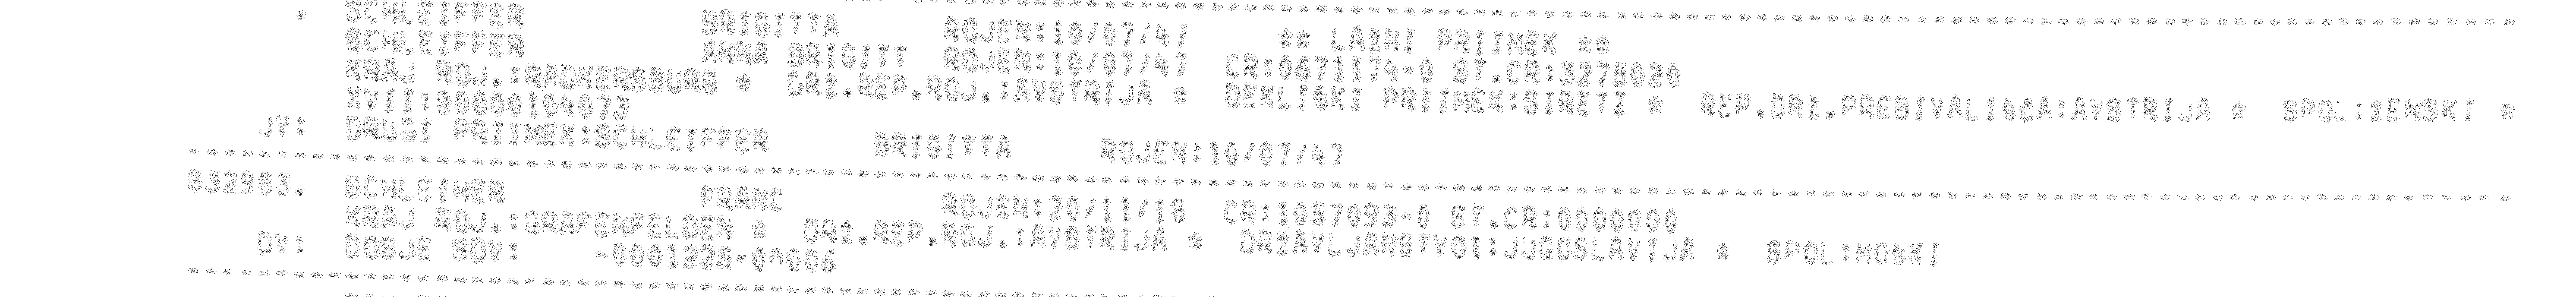 . SCHLEIFFER BRIGITTA ROJEN:10/07/47 ** LAZNI PRIIMEK **
SCHLEIFFER ANNA BRIGITT ROJEN:10/07/47 CR:0671174-0 ST.CR:3275020
KRAJ ROJ.:RADKERSBURG * DRZ.REP.ROJ.:AVSTRIJA * DEKLISKI PRIIMEK:SIRETI * REP.DRZ.PREBIVALISCA:AVSTRIJA * SPOL:ZENSKI *
XVII:00000104073
JV: DRUGI PRIIMEK:SCHLEIFFER BRIGITTA ROJEN:10/07/47
832983. SCHLEIMER FRANC ROJEN:20/11/18 CR:1057093-0 ST.CR:0000000
KRAJ ROJ.: * DRZ.REP.ROJ.:AVSTRIJA * DRZAVLJANSTVO1:JUGOSLAVIJA * SPOL:MOSKI
OV: DOSJE SDV: -0001228-00006